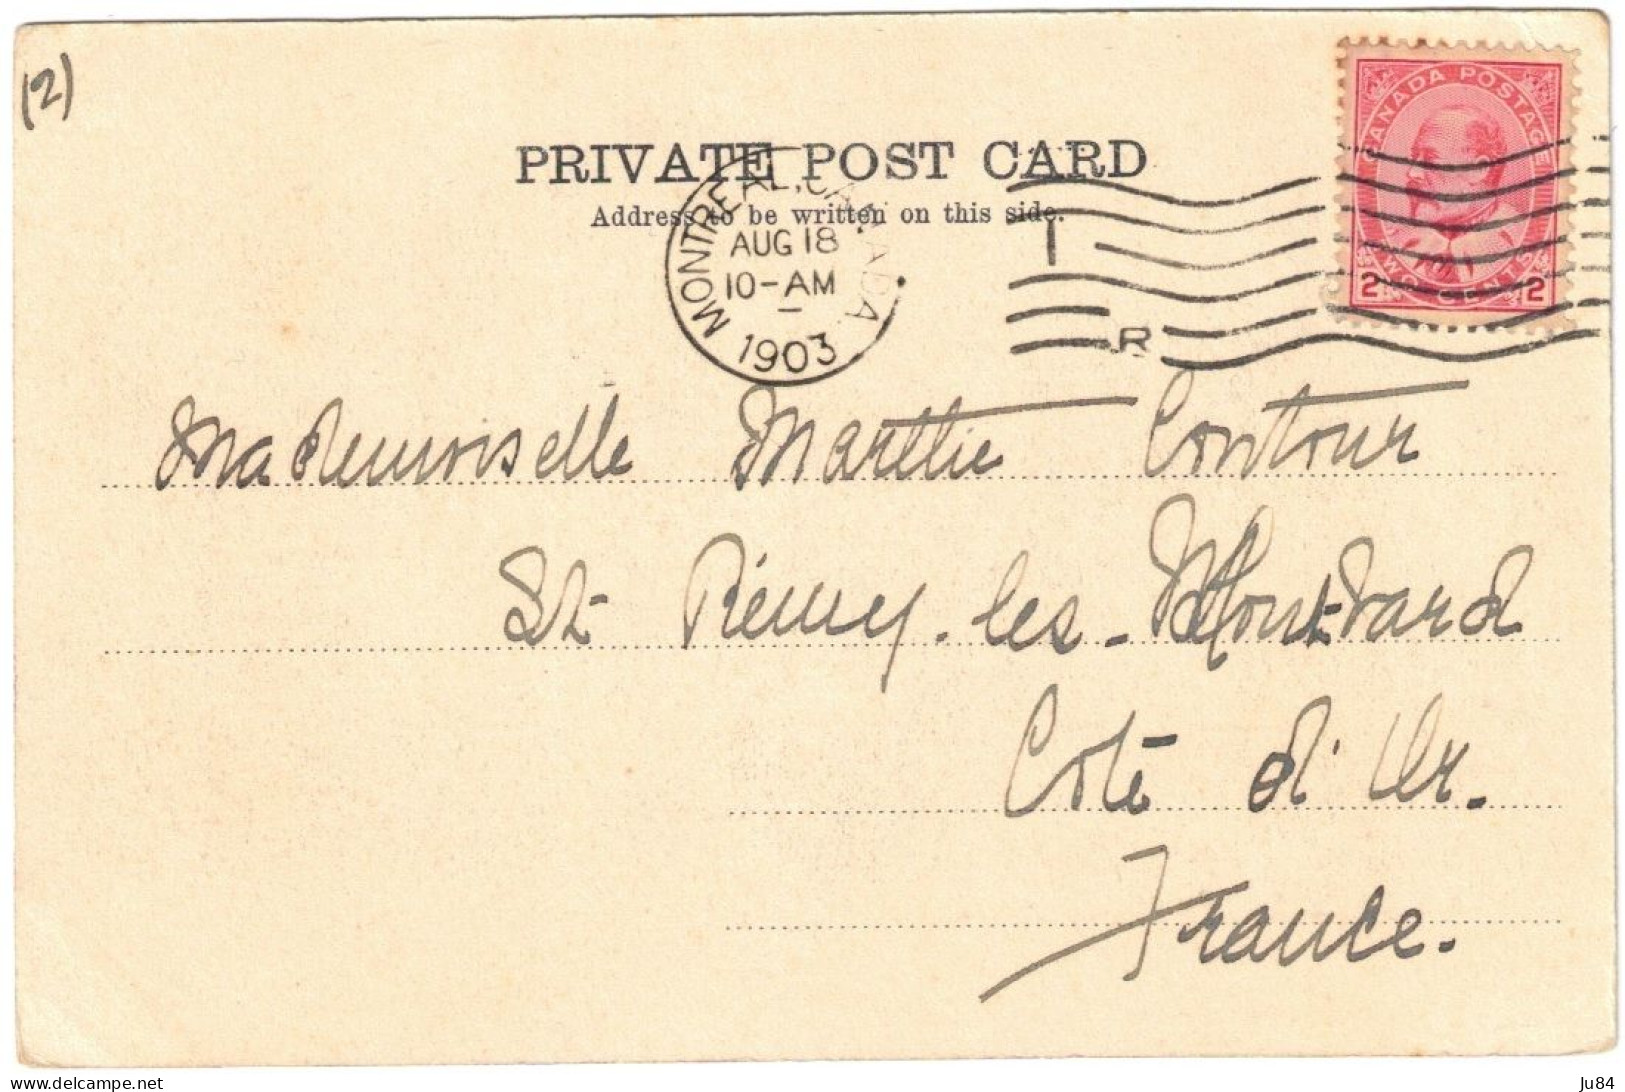 (2)
CANADA POSTAGE
2 TWO CENTS 2
PRIVATE POST CARD
Address to be written on this side.
MONTREAL, CANADA.
AUG 18
10-AM
1903
I
R
Mademoiselle Marthe Contour
St- Rémy-les-Montbard
Côte d'Or.
France.
Ju84